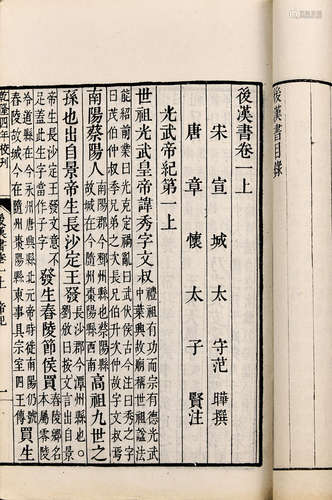 易拍全球
後漢書目錄
後漢書卷一上
宋宣城太守范曄撰
唐章懷太子賢注
光武帝紀第一上
世祖光武皇帝諱秀字文叔禮祖有功而宗有德光武中葉興故廟稱世祖諡法
能紹前業曰光克定禍亂曰武伏侯古今注曰秀之字曰茂伯仲叔季兄弟之次長兄伯升次仲故字文叔焉
南陽蔡陽人南陽郡今鄧州縣也蔡陽縣故城在今隨州棗陽縣西南高祖九世之
孫也出自景帝生長沙定王發長沙郡今潭州縣也劉攽曰按文言出自景
帝生長沙定王發文意不足蓋此生字當作子字發生舂陵節侯買舂陵鄉名本屬零陵
泠道縣在今永州唐興縣北元帝時徙南陽仍號舂陵故城今在隨州棗陽縣東事具宗室四王傳買生
乾隆四年校刊
後漢書卷一上 帝紀 一